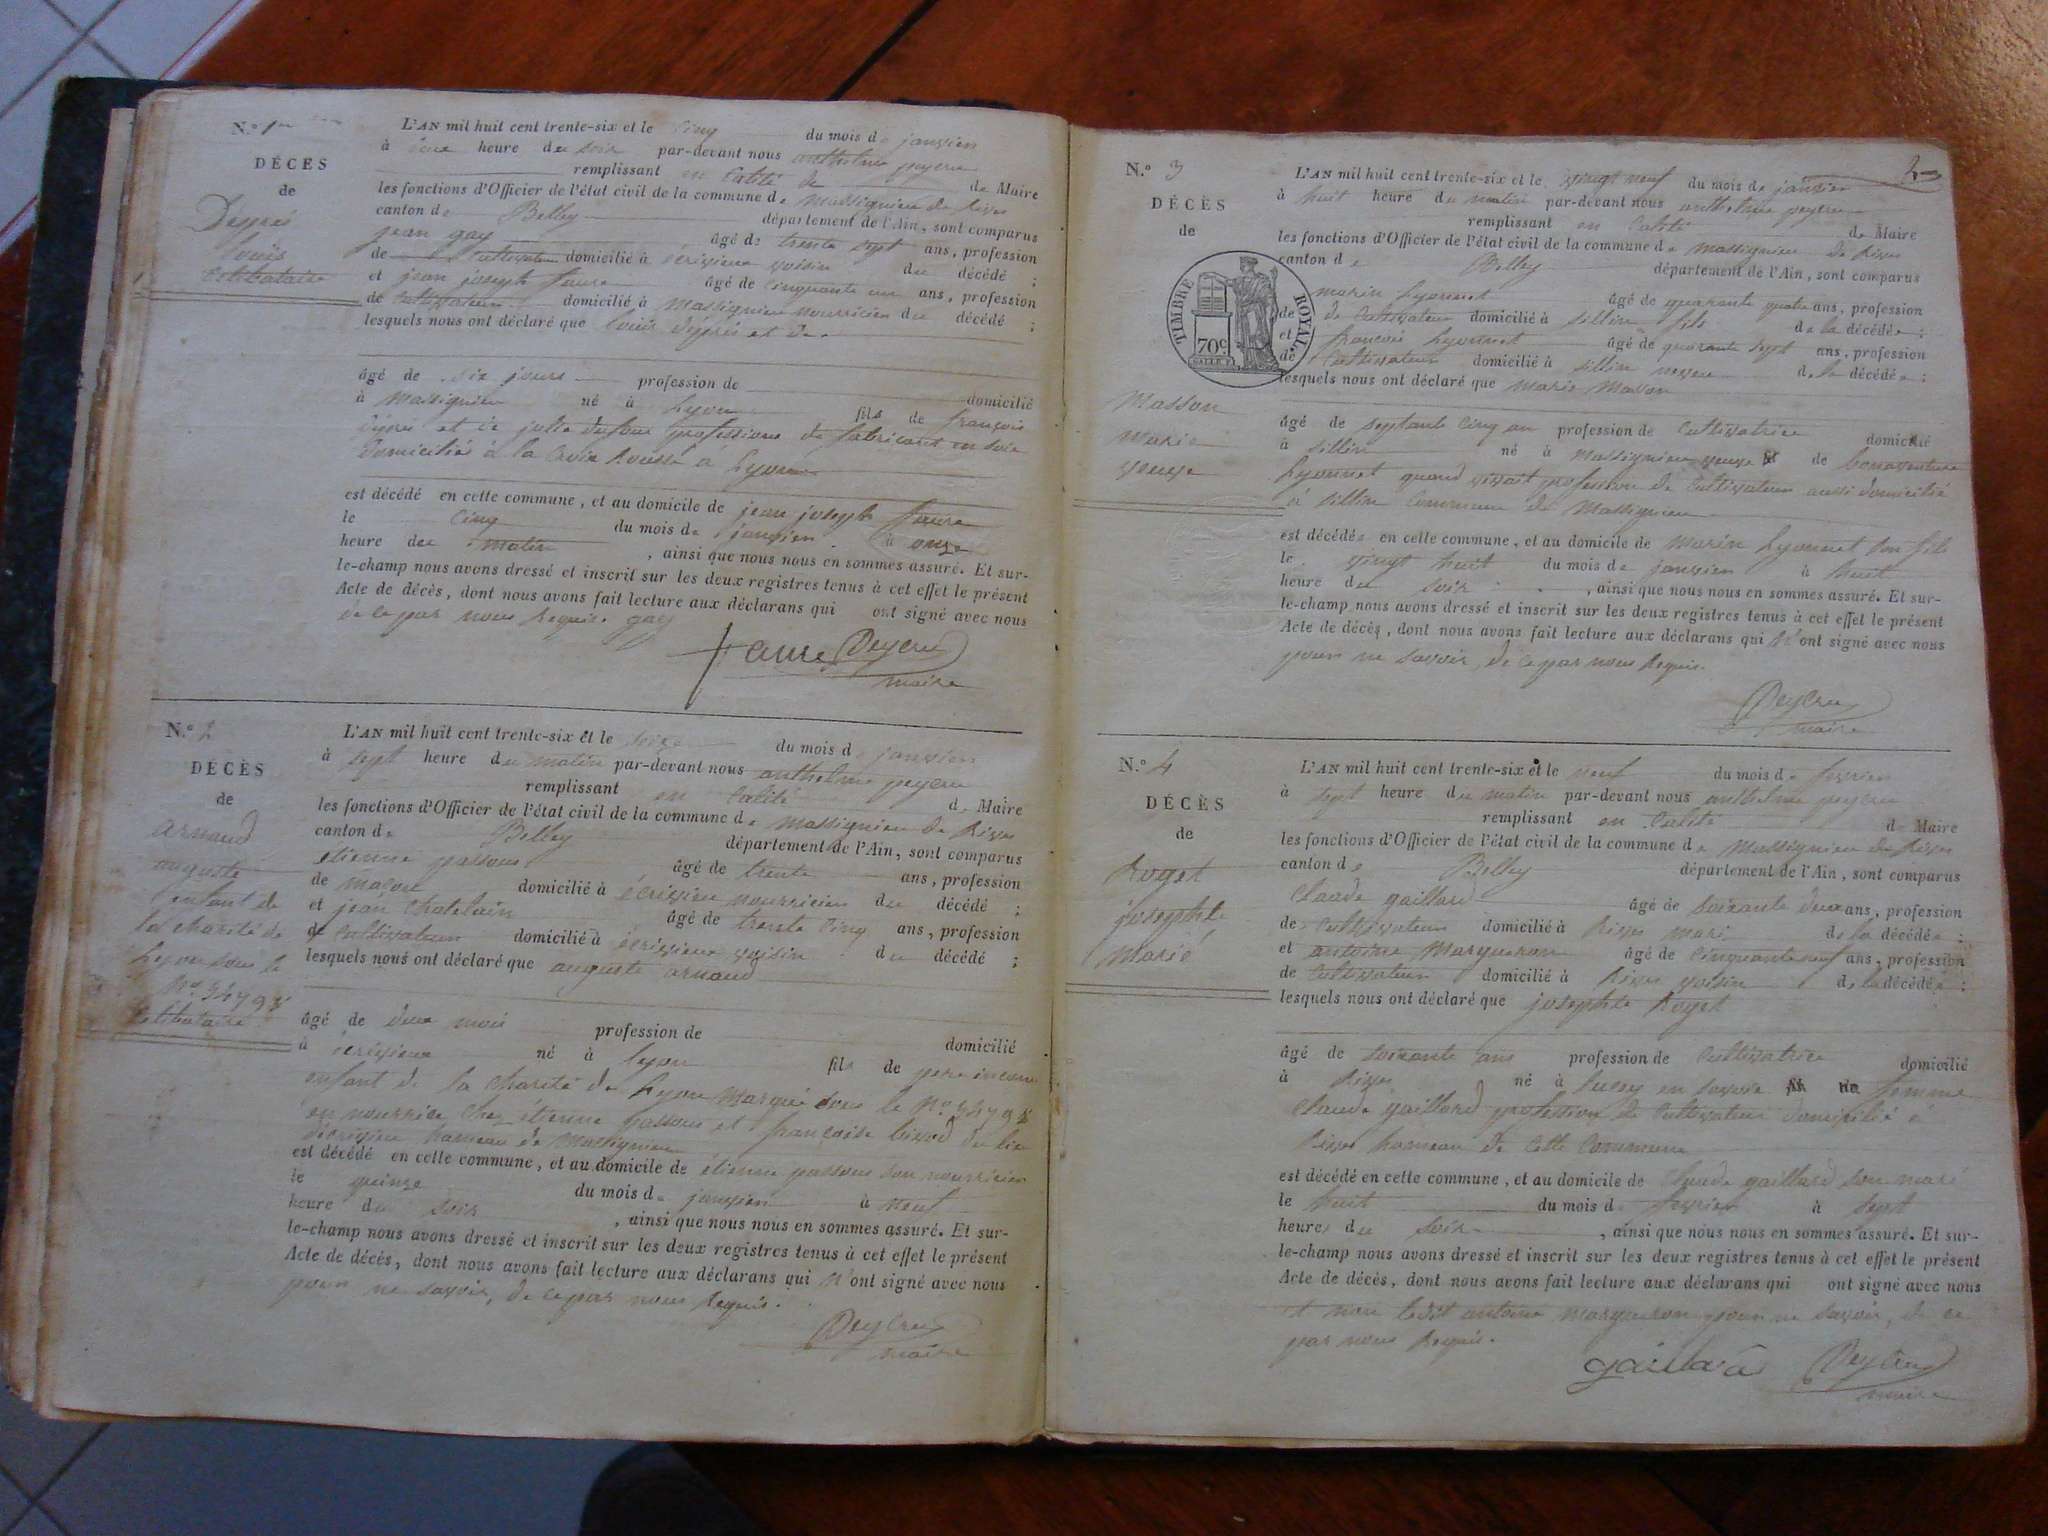 N.º 1er
DÉCÈS
de
Deyrés
Louis
Célibataire
L'AN mil huit cent trente-six et le cinq du mois de janvier
à une heure du soir par-devant nous anthelme peycru
remplissant en calité de de Maire
les fonctions d'Officier de l'état civil de la commune de Massignieu de Rives
canton de Belley département de l'Ain, sont comparus
jean gay âgé de trente sept ans, profession
de Cultivateur domicilié à écrivieu voisin du décédé ;
et jean joseph faure âgé de cinquante un ans, profession
de Cultivateur domicilié à Massignieu nourricier du décédé ;
lesquels nous ont déclaré que louis
âgé de six jours profession de domicilié
à Massignieu né à Lyon fils de françois
et de julie professions de fabricant en soie
domiciliés à la Croix Rousse à Lyon
est décédé en cette commune, et au domicile de jean joseph faure
le cinq du mois de janvier à onze
heure du matin , ainsi que nous nous en sommes assuré. Et sur-
le-champ nous avons dressé et inscrit sur les deux registres tenus à cet effet le présent
Acte de décès, dont nous avons fait lecture aux déclarans qui ont signé avec nous
de ce par nous Requis. gay
faure Peycru
maire
N.º 2
DÉCÈS
de
arnaud
auguste
enfant de
la charité de
Lyon sous le
Nº
Célibataire
L'AN mil huit cent trente-six et le seize du mois de janvier
à sept heure du matin par-devant nous anthelme peycru
remplissant en calité de Maire
les fonctions d'Officier de l'état civil de la commune de Massignieu de Rives
canton de Belley département de l'Ain, sont comparus
étienne passous âgé de trente ans, profession
de maçon domicilié à écrivieu nourricier du décédé ;
et jean chatelain âgé de trente cinq ans, profession
de Cultivateur domicilié à écrivieu voisin du décédé ;
lesquels nous ont déclaré que auguste arnaud
âgé de deux mois profession de domicilié
à écrivieu né à lyon fils de pere inconnu
enfant de la charité de Lyon Marqué sous le Nº
en nourrice chez étienne passous et françoise du lieu
d'écrivieu hameau de Massignieu
est décédé en cette commune, et au domicile de étienne passous son nourricier
le quinze du mois de janvier à neuf
heure du soir , ainsi que nous nous en sommes assuré. Et sur-
le-champ nous avons dressé et inscrit sur les deux registres tenus à cet effet le présent
Acte de décès, dont nous avons fait lecture aux déclarans qui n'ont signé avec nous
pour ne savoir, de ce par nous Requis.
Peycru
maire
N.º 3
DÉCÈS
de
TIMBRE ROYAL
70c
Masson
Marie
veuve
L'AN mil huit cent trente-six et le vingt neuf du mois de janvier
à huit heure du matin par-devant nous anthelme peycru
remplissant en calité de Maire
les fonctions d'Officier de l'état civil de la commune de Massignieu de Rives
canton de Belley département de l'Ain, sont comparus
marin Lyonnet âgé de quarante quatre ans, profession
de Cultivateur domicilié à sillin fils de la décédée ;
et françois Lyonnet âgé de quarante sept ans, profession
de Cultivateur domicilié à sillin neveu de la décédée ;
lesquels nous ont déclaré que marie Masson
âgé de septante cinq an profession de Cultivatrice domicilié
à sillin né à Massignieu veuve de bonaventure
Lyonnet quand vivait profession de Cultivateur aussi domicilié
à sillin Commune de Massignieu
est décédée en cette commune, et au domicile de marin Lyonnet son fils
le vingt huit du mois de janvier à huit
heure du soir , ainsi que nous nous en sommes assuré. Et sur-
le-champ nous avons dressé et inscrit sur les deux registres tenus à cet effet le présent
Acte de décès, dont nous avons fait lecture aux déclarans qui n'ont signé avec nous
pour ne savoir, de ce par nous Requis.
Peycru
maire
N.º 4
DÉCÈS
de
Roget
josephte
Marié
L'AN mil huit cent trente-six et le neuf du mois de fevrier
à sept heure du matin par-devant nous anthelme peycru
remplissant en calité de Maire
les fonctions d'Officier de l'état civil de la commune de Massignieu de Rives
canton de Belley département de l'Ain, sont comparus
Claude gaillard âgé de soixante deux ans, profession
de Cultivateur domicilié à Rives mari de la décédée ;
et antoine Marqueron âgé de cinquante neuf ans, profession
de Cultivateur domicilié à Rives voisin de la décédée ;
lesquels nous ont déclaré que josephte Roget
âgé de soixante ans profession de Cultivatrice domicilié
à Rives né à lucey en savoie femme
Claude gaillard profession de Cultivateur domicilié à
Rives hameau de cette Commune
est décédé en cette commune, et au domicile de Claude gaillard son mari
le huit du mois de fevrier à sept
heures du soir , ainsi que nous nous en sommes assuré. Et sur-
le-champ nous avons dressé et inscrit sur les deux registres tenus à cet effet le présent
Acte de décès, dont nous avons fait lecture aux déclarans qui ont signé avec nous
et non ledit antoine marqueron pour ne savoir, de ce
par nous Requis.
gailard Peycru
maire